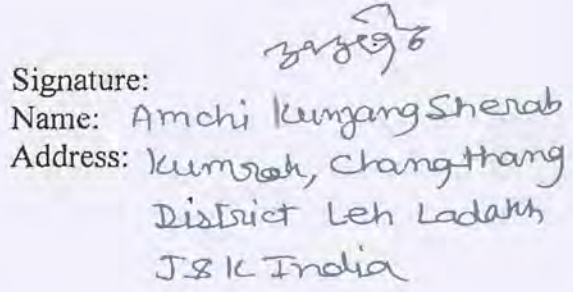 Signature:
Name: Amchi Kunzang Sherab
Address: Kumrok, Changthang
District Leh Ladakh
J&K India